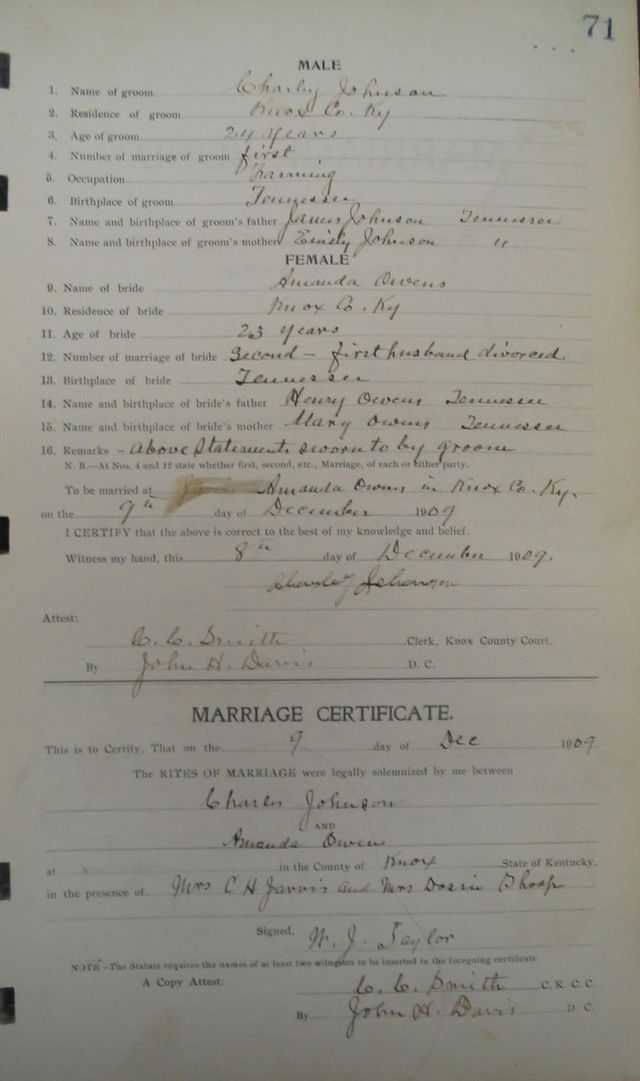 71
MALE
1. Name of groom Charley Johnson
2. Residence of groom Knox Co. Ky
3. Age of groom 24 years
4. Number of marriage of groom first
5. Occupation Farming
6. Birthplace of groom Tennessee
7. Name and birthplace of groom's father James Johnson Tennessee
8. Name and birthplace of groom's mother Emily Johnson "
FEMALE
9. Name of bride Amanda Owens
10. Residence of bride Knox Co. Ky
11. Age of bride 23 years
12. Number of marriage of bride Second - first husband divorced
13. Birthplace of bride Tennessee
14. Name and birthplace of bride's father Henry Owens Tennessee
15. Name and birthplace of bride's mother Mary Owens Tennessee
16. Remarks - above statements sworn to by groom
N. B.—At Nos. 4 and 12 state whether first, second, etc., Marriage, of each or either party.
To be married at Amanda Owens in Knox Co. Ky.
on the 9th day of December 1909
I CERTIFY that the above is correct to the best of my knowledge and belief.
Witness my hand, this 8th day of December 1909.
Charley Johnson
Attest:
C. C. Smith Clerk, Knox County Court.
By John H. Davis D. C.
MARRIAGE CERTIFICATE.
This is to Certify, That on the 9 day of Dec 1909
The RITES OF MARRIAGE were legally solemnized by me between
Charles Johnson
AND
Amanda Owens
at in the County of Knox State of Kentucky,
in the presence of Mrs C H Jarvis and Mrs
Signed, W. J. Taylor
NOTE—The Statute requires the names of at least two witnesses to be inserted in the foregoing certificate.
A Copy Attest: C. C. Smith C. K. C. C.
By John H. Davis D. C.